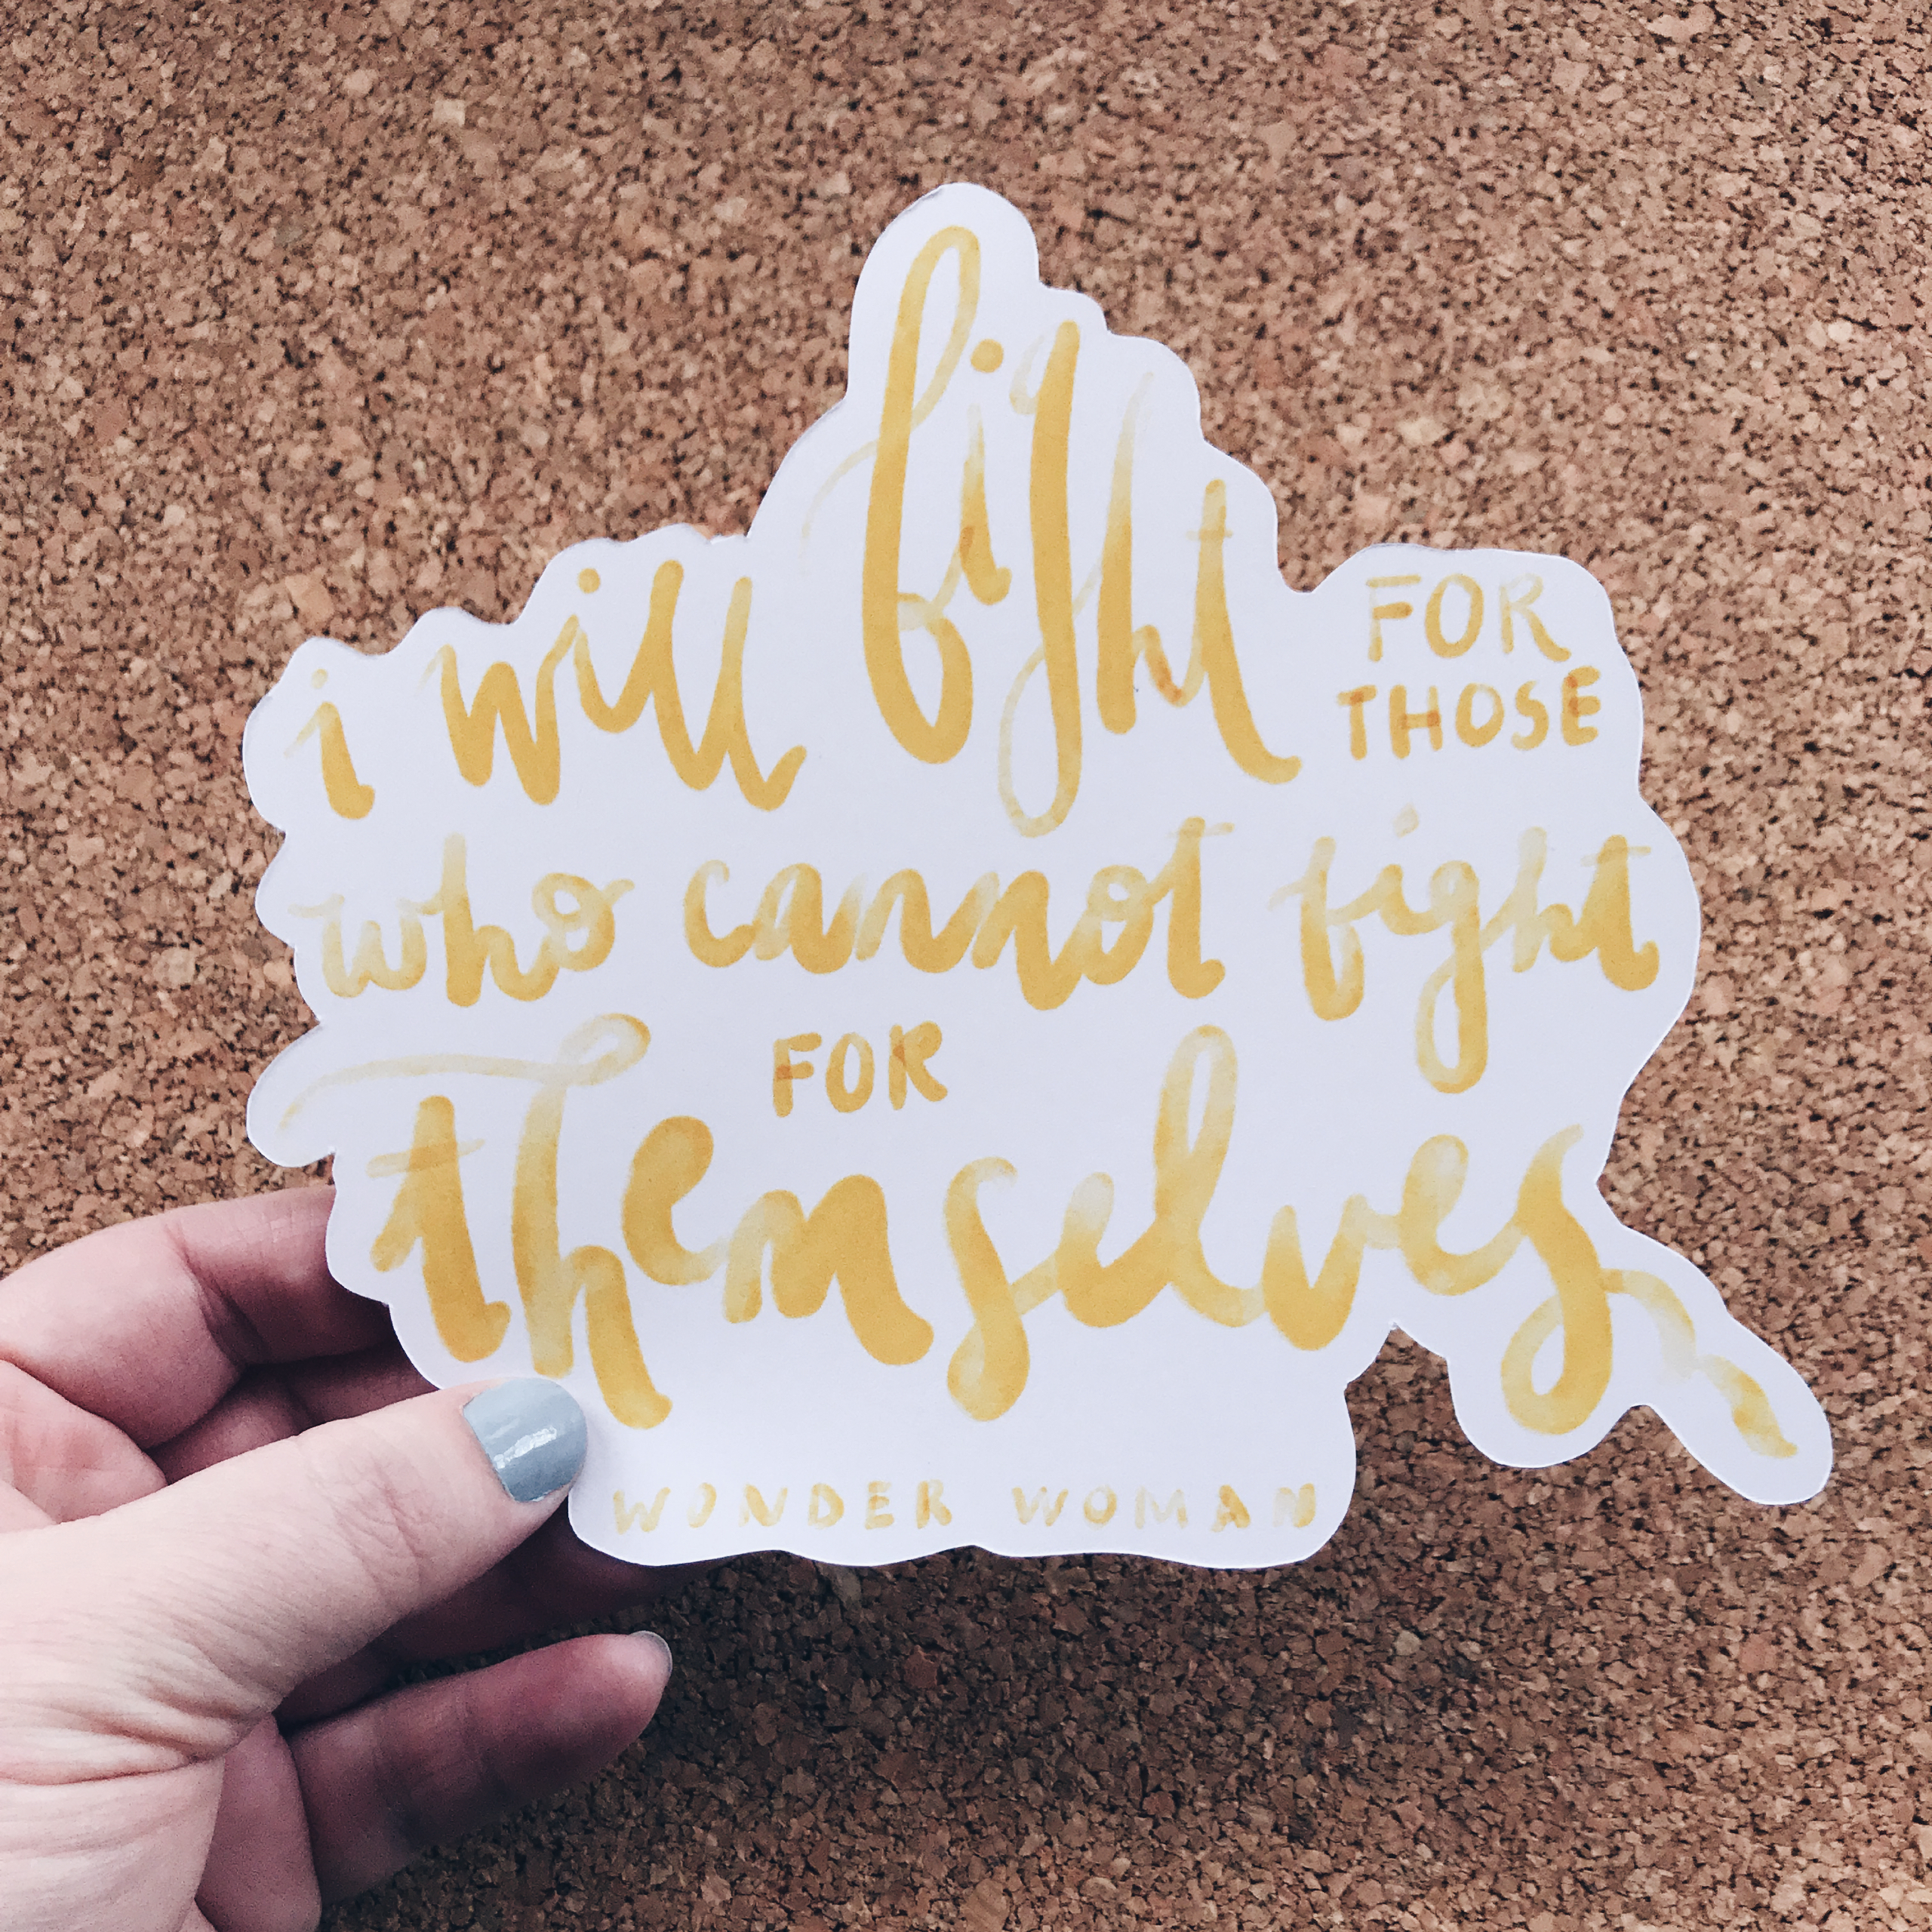 i will fight FOR
THOSE
who cannot fight
FOR
themselves
WONDER WOMAN